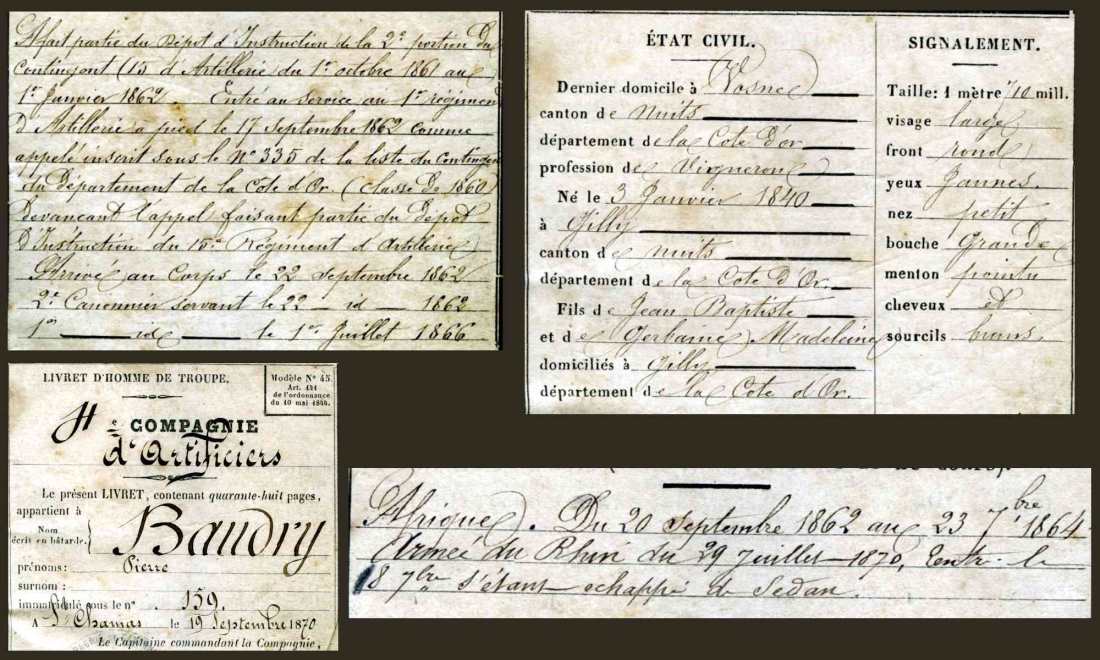 A fait partie du Dépot d'Instruction de la 2e portion du
Contingent (15 d'Artillerie du 1er octobre 1861 au
1er Janvier 1862. Entré au service au 1er régimen
d'Artillerie a pied le 17 Septembre 1862 comme
appelé inscrit sous le N° 335 de la liste du Contingen
du Département de la Cote d'Or (Classe de 1860)
Devancant l'appel faisant partie du Depot
d'Instruction du 15e Régiment d'Artillerie)
Arrivé au Corps le 22 Septembre 1862
2e Canonnier servant le 22 — id — 1862
1er — id — le 1er Juillet 1866
ÉTAT CIVIL.
Dernier domicile à Vosne
canton de nuits
département de la Cote d'or
profession de Vigneron
Né le 3 Janvier 1840
à Gilly
canton de nuits
département de la Cote d'Or.
Fils de Jean Baptiste
et de Gerbame Madeleine
domiciliés à Gilly
département de la Cote d'Or.
SIGNALEMENT.
Taille: 1 mètre 710 mill.
visage large
front rond
yeux Jaunes.
nez petit
bouche Grande
menton pointu
cheveux et
sourcils bruns
LIVRET D'HOMME DE TROUPE.
Modèle N° 45.
Art. 141
de l'ordonnance
du 10 mai 1844.
4e COMPAGNIE
d'Artificiers
Le présent LIVRET, contenant quarante-huit pages,
appartient à
Nom
écrit en bâtarde. } Baudry
prénoms: Pierre
surnom :
immatriculé sous le n° 159.
A St Chamas le 19 Septembre 1870
Le Capitaine commandant la Compagnie,
Afrique. Du 20 Septembre 1862 au 23 7bre 1864
Armée du Rhin du 29 Juillet 1870, Entré le
8 7bre s'étant echappé de Sedan.